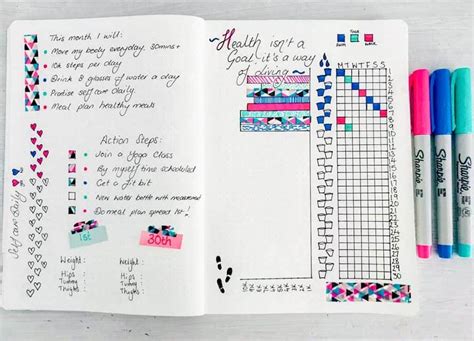 This month I will:
Move my body everyday. 30mins+
10k steps per day
Drink 8 glasses of water a day
Practise self care daily.
Meal plan healthy meals
Action Steps:
Join a Yoga Class
By myself time scheduled
Get a fit bit
New water bottle with measured
Do meal plan spread 1st!
Self care daily
1st
30th
Weight :
Hips :
Tummy :
Thighs :
Weight :
Hips :
Tummy :
Thighs :
~Health isn't a
Goal it's a way
of living~
M T W T F S S
1
2
3
4
5
6
7
8
9
10
30
Sharpie
Sharpie
Sharpie